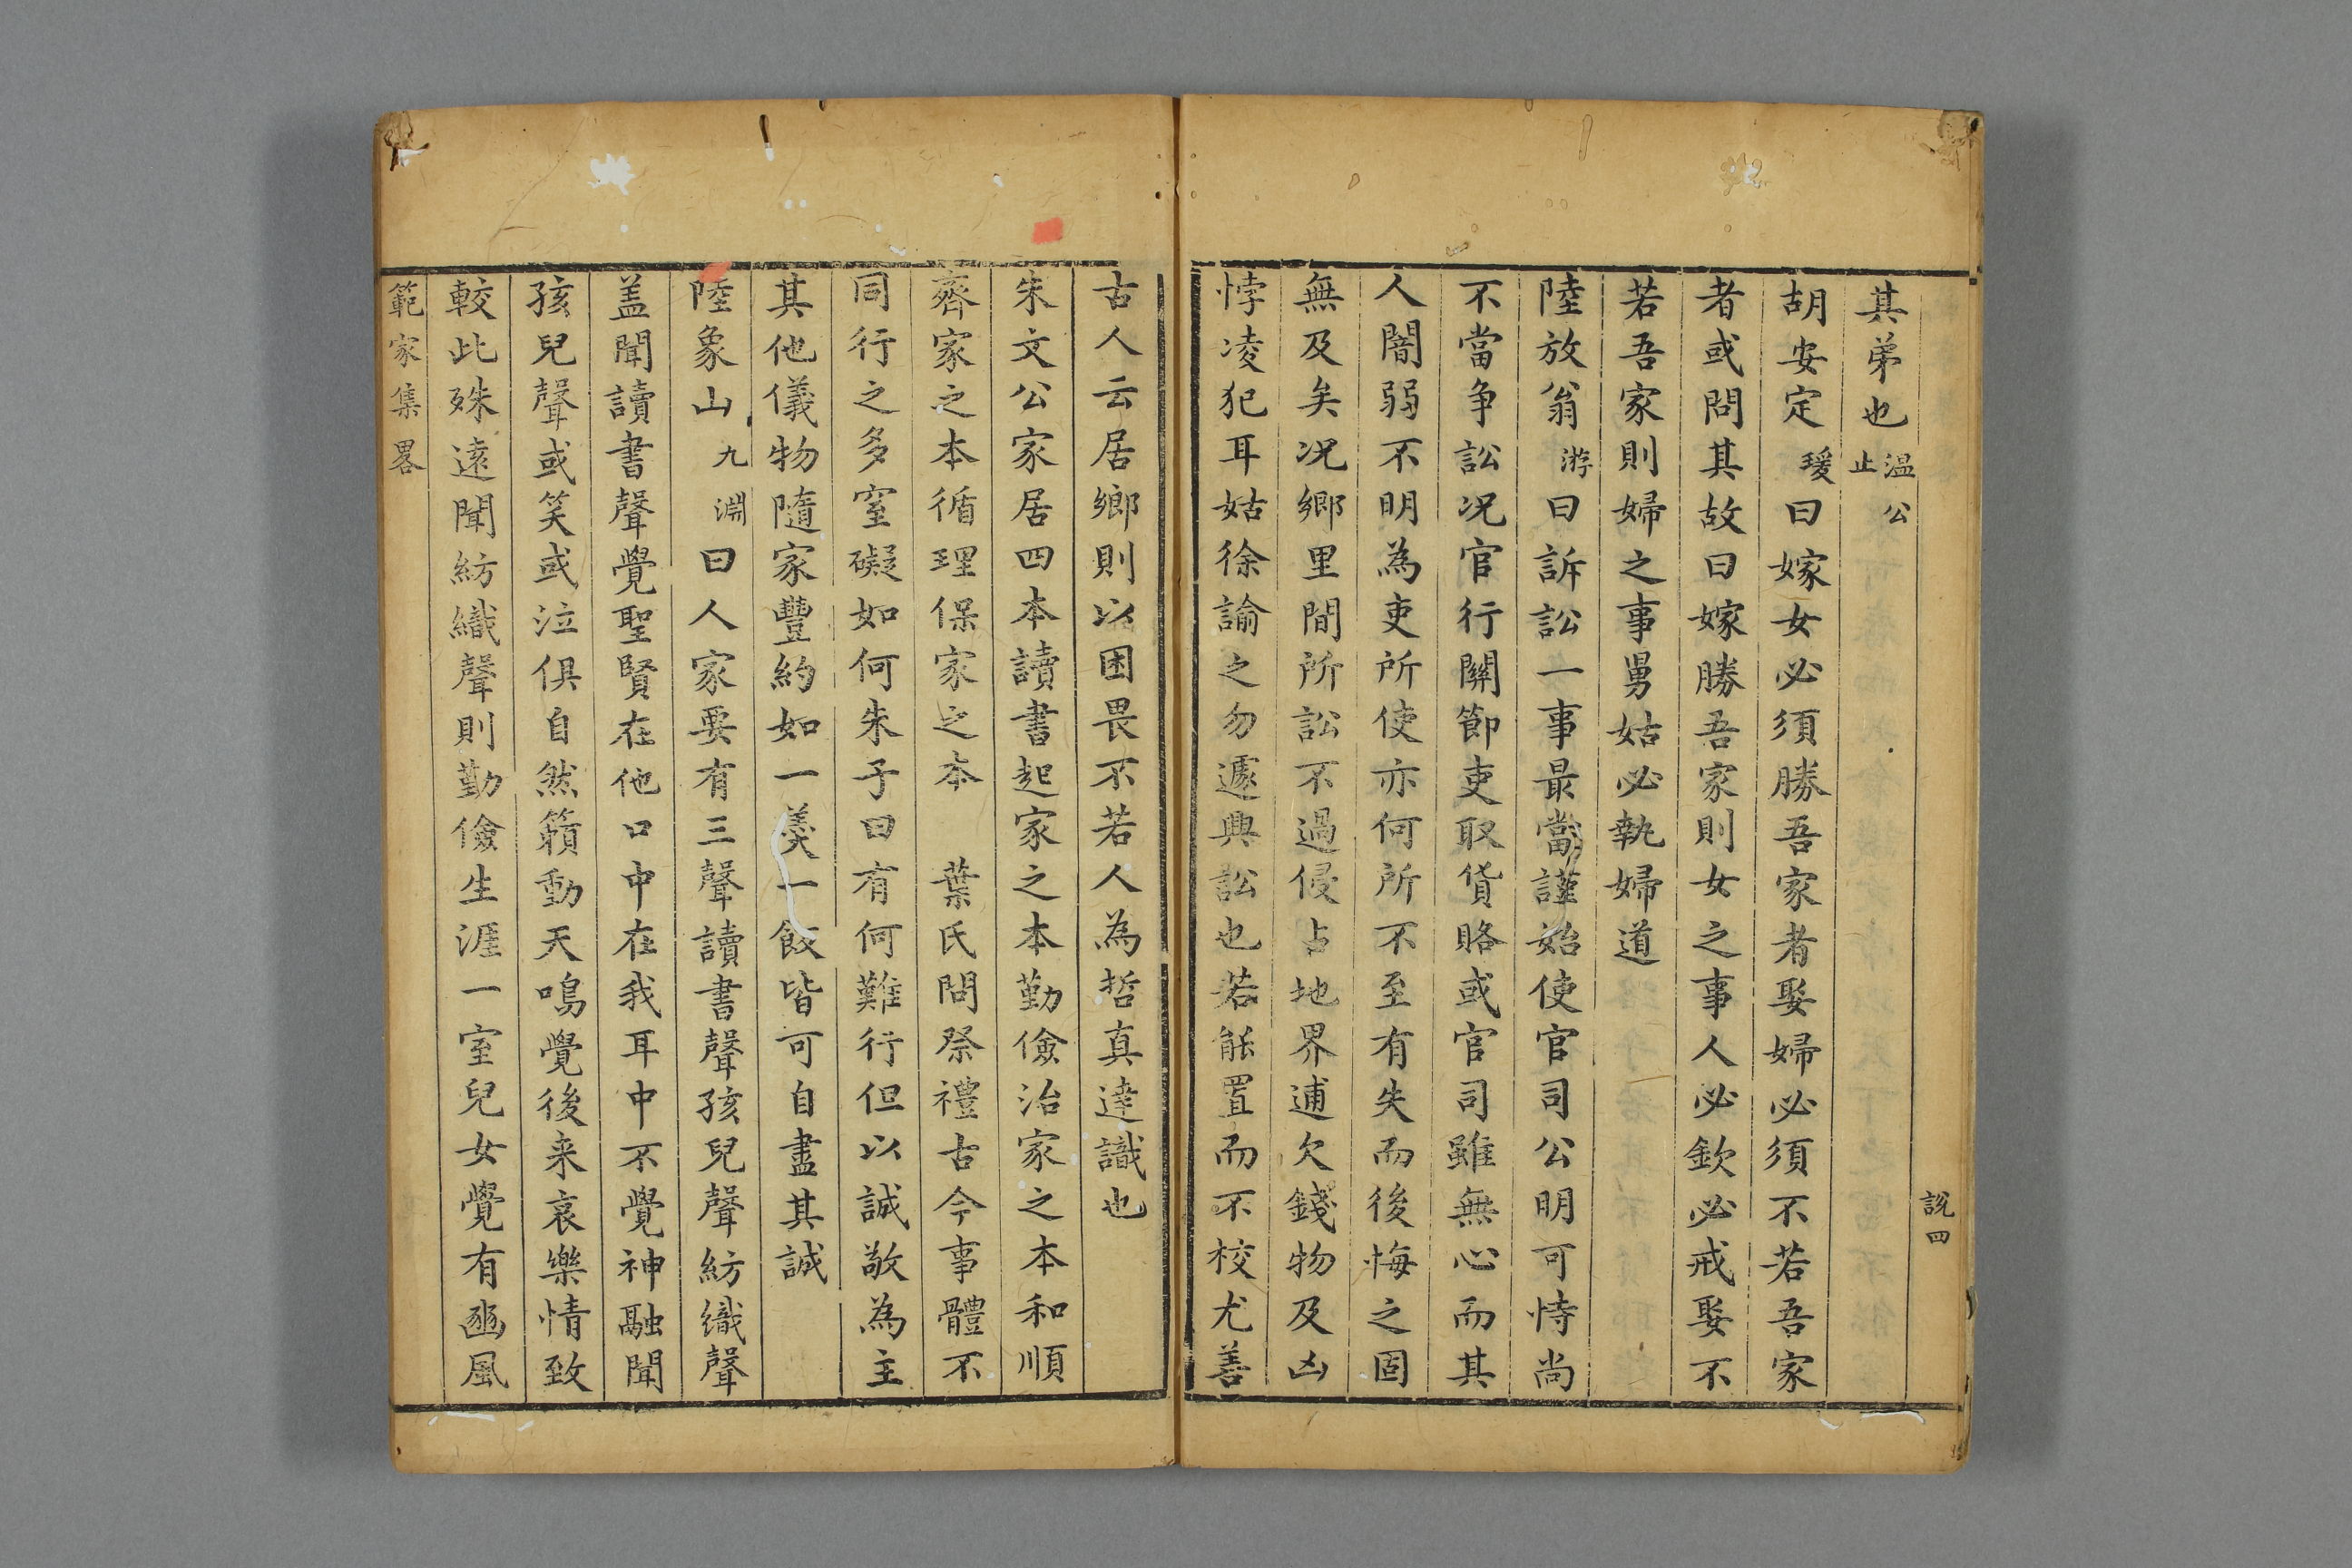 說四
其弟也温公止
胡安定瑗曰嫁女必須勝吾家者娶婦必須不若吾家
者或問其故曰嫁勝吾家則女之事人必欽必戒娶不
若吾家則婦之事舅姑必執婦道
陸放翁游曰訴訟一事最當謹始使官司公明可恃尚
不當争訟况官行關節吏取貨賂或官司雖無心而其
人闇弱不明為吏所使亦何所不至有失而後悔之固
無及矣况鄉里間所訟不過侵占地界逋欠錢物及凶
悖凌犯耳姑徐諭之勿遽興訟也若能置而不校尤善
古人云居鄉則以困畏不若人為哲真達識也
朱文公家居四本讀書起家之本勤儉治家之本和順
齊家之本循理保家之本　葉氏問祭禮古今事體不
同行之多窒礙如何朱子曰有何難行但以誠敬為主
其他儀物隨家豐約如一羹一飯皆可自盡其誠
陸象山九淵曰人家要有三聲讀書聲孩兒聲紡織聲
盖聞讀書聲覺聖賢在他口中在我耳中不覺神融聞
孩兒聲或笑或泣俱自然籟動天鳴覺後来哀樂情致
較此殊遠聞紡織聲則勤儉生涯一室兒女覺有豳風
範家集畧